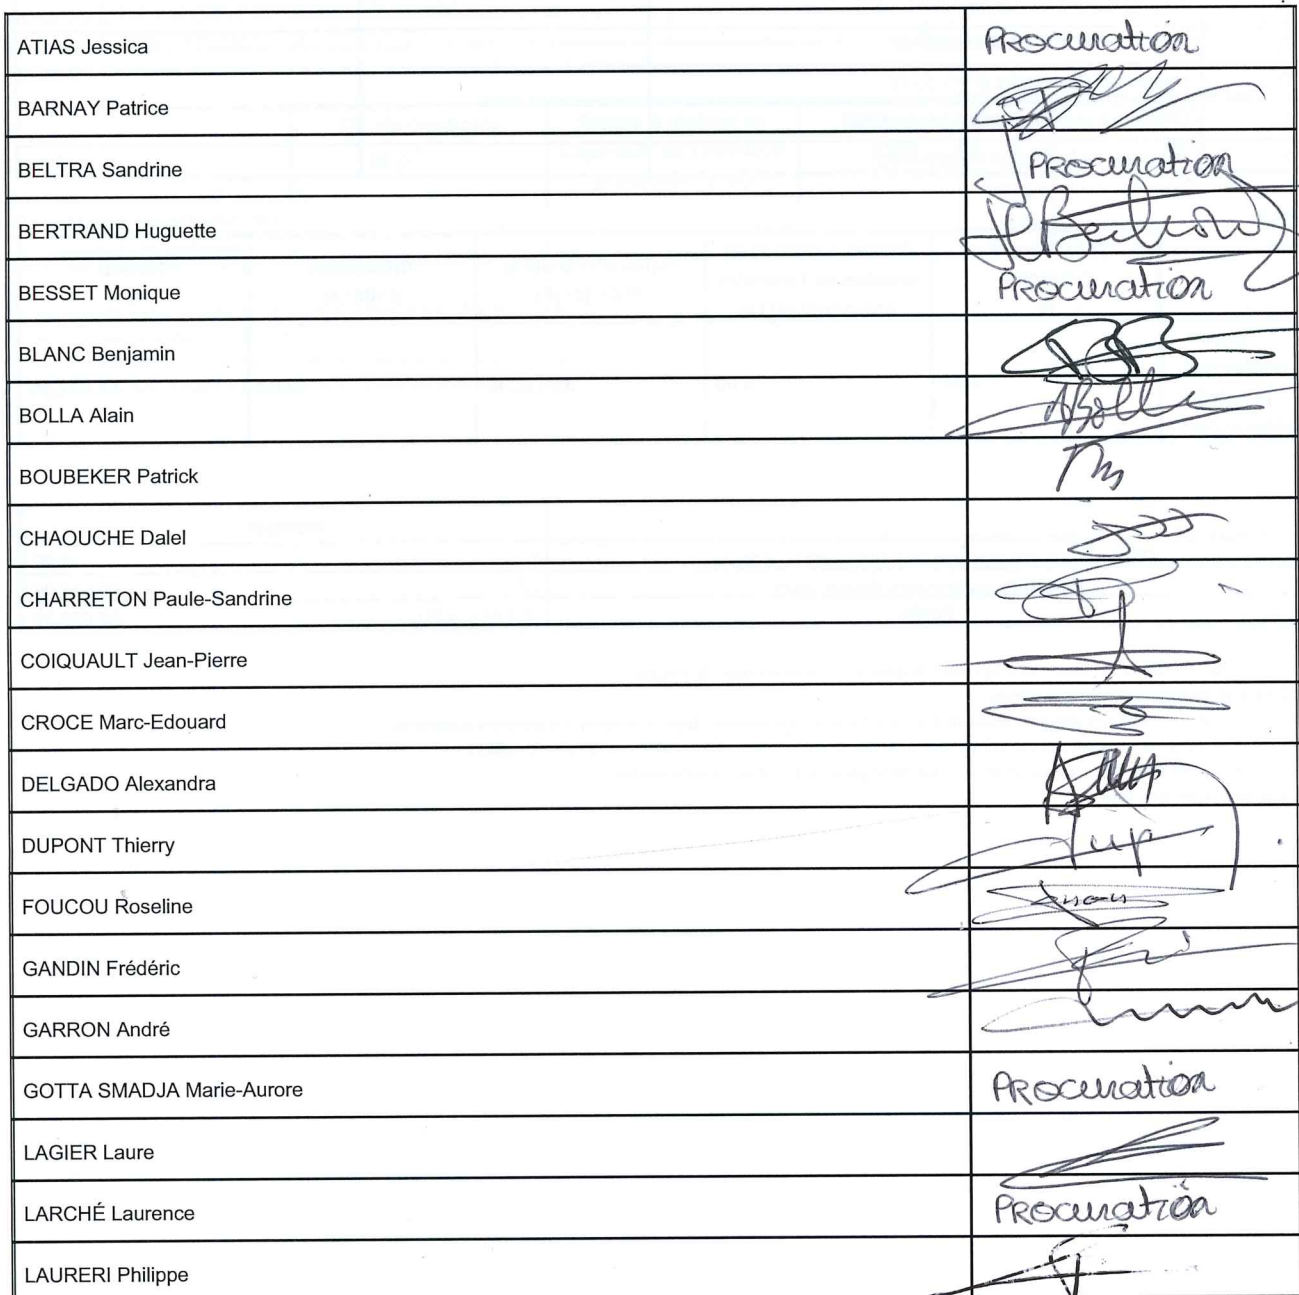 ATIAS Jessica Procuration
BARNAY Patrice
BELTRA Sandrine Procuration
BERTRAND Huguette H Bertrand
BESSET Monique Procuration
BLANC Benjamin
BOLLA Alain ABolla
BOUBEKER Patrick
CHAOUCHE Dalel
CHARRETON Paule-Sandrine
COIQUAULT Jean-Pierre
CROCE Marc-Edouard
DELGADO Alexandra
DUPONT Thierry
FOUCOU Roseline
GANDIN Frédéric
GARRON André
GOTTA SMADJA Marie-Aurore Procuration
LAGIER Laure
LARCHÉ Laurence Procuration
LAURERI Philippe